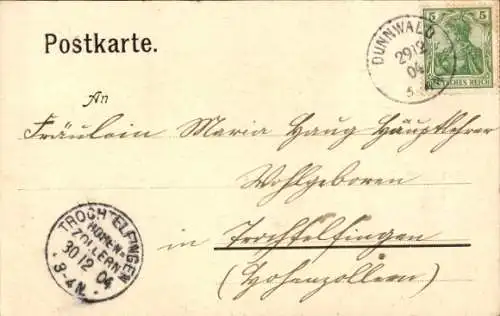 Postkarte.
DÜNNWALD
29 12
04
5
5
DEUTSCHES REICH
An
Fräulein Maria Haug Hauptlehrer
Wohlgeboren
in Trochtelfingen
(Hohenzollern)
TROCHTELFINGEN
HOHEN=
ZOLLERN
30 12 04
3-4 N.